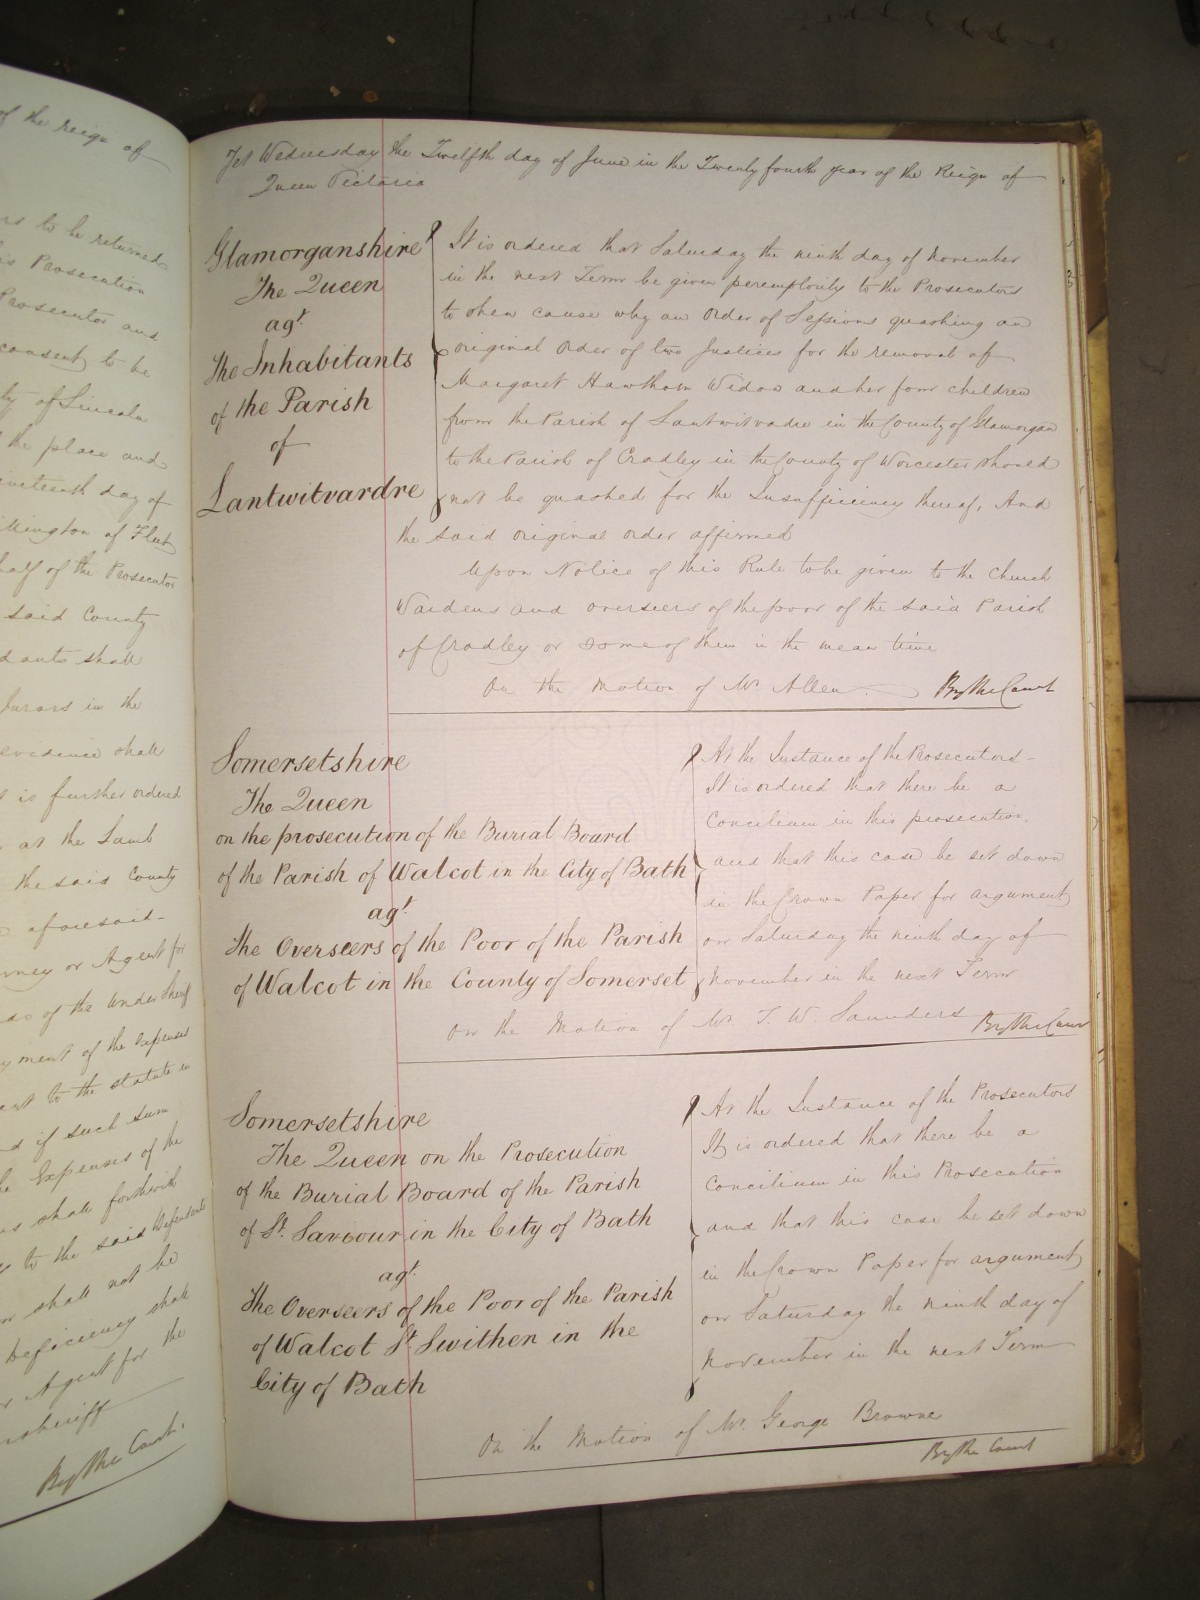 of the reign of
rs to be returned
is Prosecution
Prosecutor and
consent to be
ty of Lincoln
the place and
nineteenth day of
llington of Fleet
half of the Prosecutor
said County
dants shall
Jurors in the
evidence shall
is further ordered
at the Lamb
the said County
aforesaid
rney or Agent for
ds of the Under Sheriff
yment of the expenses
to the statute in
d if such sum
he Expenses of the
shall forthwith
to the said Defendants
shall not be
deficiency shall
Agent for the
sheriff
By the Court.
Yet Wednesday the Twelfth day of June in the Twenty fourth year of the Reign of
Queen Victoria
Glamorganshire
The Queen
agt
The Inhabitants
of the Parish
of
Lantwitvardre
It is ordered that Saturday the ninth day of November
in the next Term be given peremptorily to the Prosecutors
to shew cause why an Order of Sessions quashing an
original Order of two Justices for the removal of
Margaret Widow and her four children
from the Parish of Lantwitvadre in the County of Glamorgan
to the Parish of Cradley in the County of Worcester should
not be quashed for the Insufficiency thereof, And
the said original order affirmed
Upon Notice of this Rule to be given to the Church
Wardens and overseers of the poor of the said Parish
of Cradley or some of them in the mean time
On the Motion of Mr Allen. By the Court
Somersetshire
The Queen
on the prosecution of the Burial Board
of the Parish of Walcot in the City of Bath
agt
The Overseers of the Poor of the Parish
of Walcot in the County of Somerset
At the Instance of the Prosecutors
It is ordered that there be a
Concilium in this prosecution,
and that this case be set down
in the Crown Paper for argument
on Saturday the ninth day of
November in the next Term
On the Motion of Mr T. W. Saunders By the Court
Somersetshire
The Queen on the Prosecution
of the Burial Board of the Parish
of St. Saviour in the City of Bath
agt
The Overseers of the Poor of the Parish
of Walcot St Swithen in the
City of Bath
At the Instance of the Prosecutors
It is ordered that there be a
Concilium in this Prosecution
and that this case be set down
in the Crown Paper for argument
on Saturday the ninth day of
November in the next Term
On the Motion of Mr. George Browne
By the Court